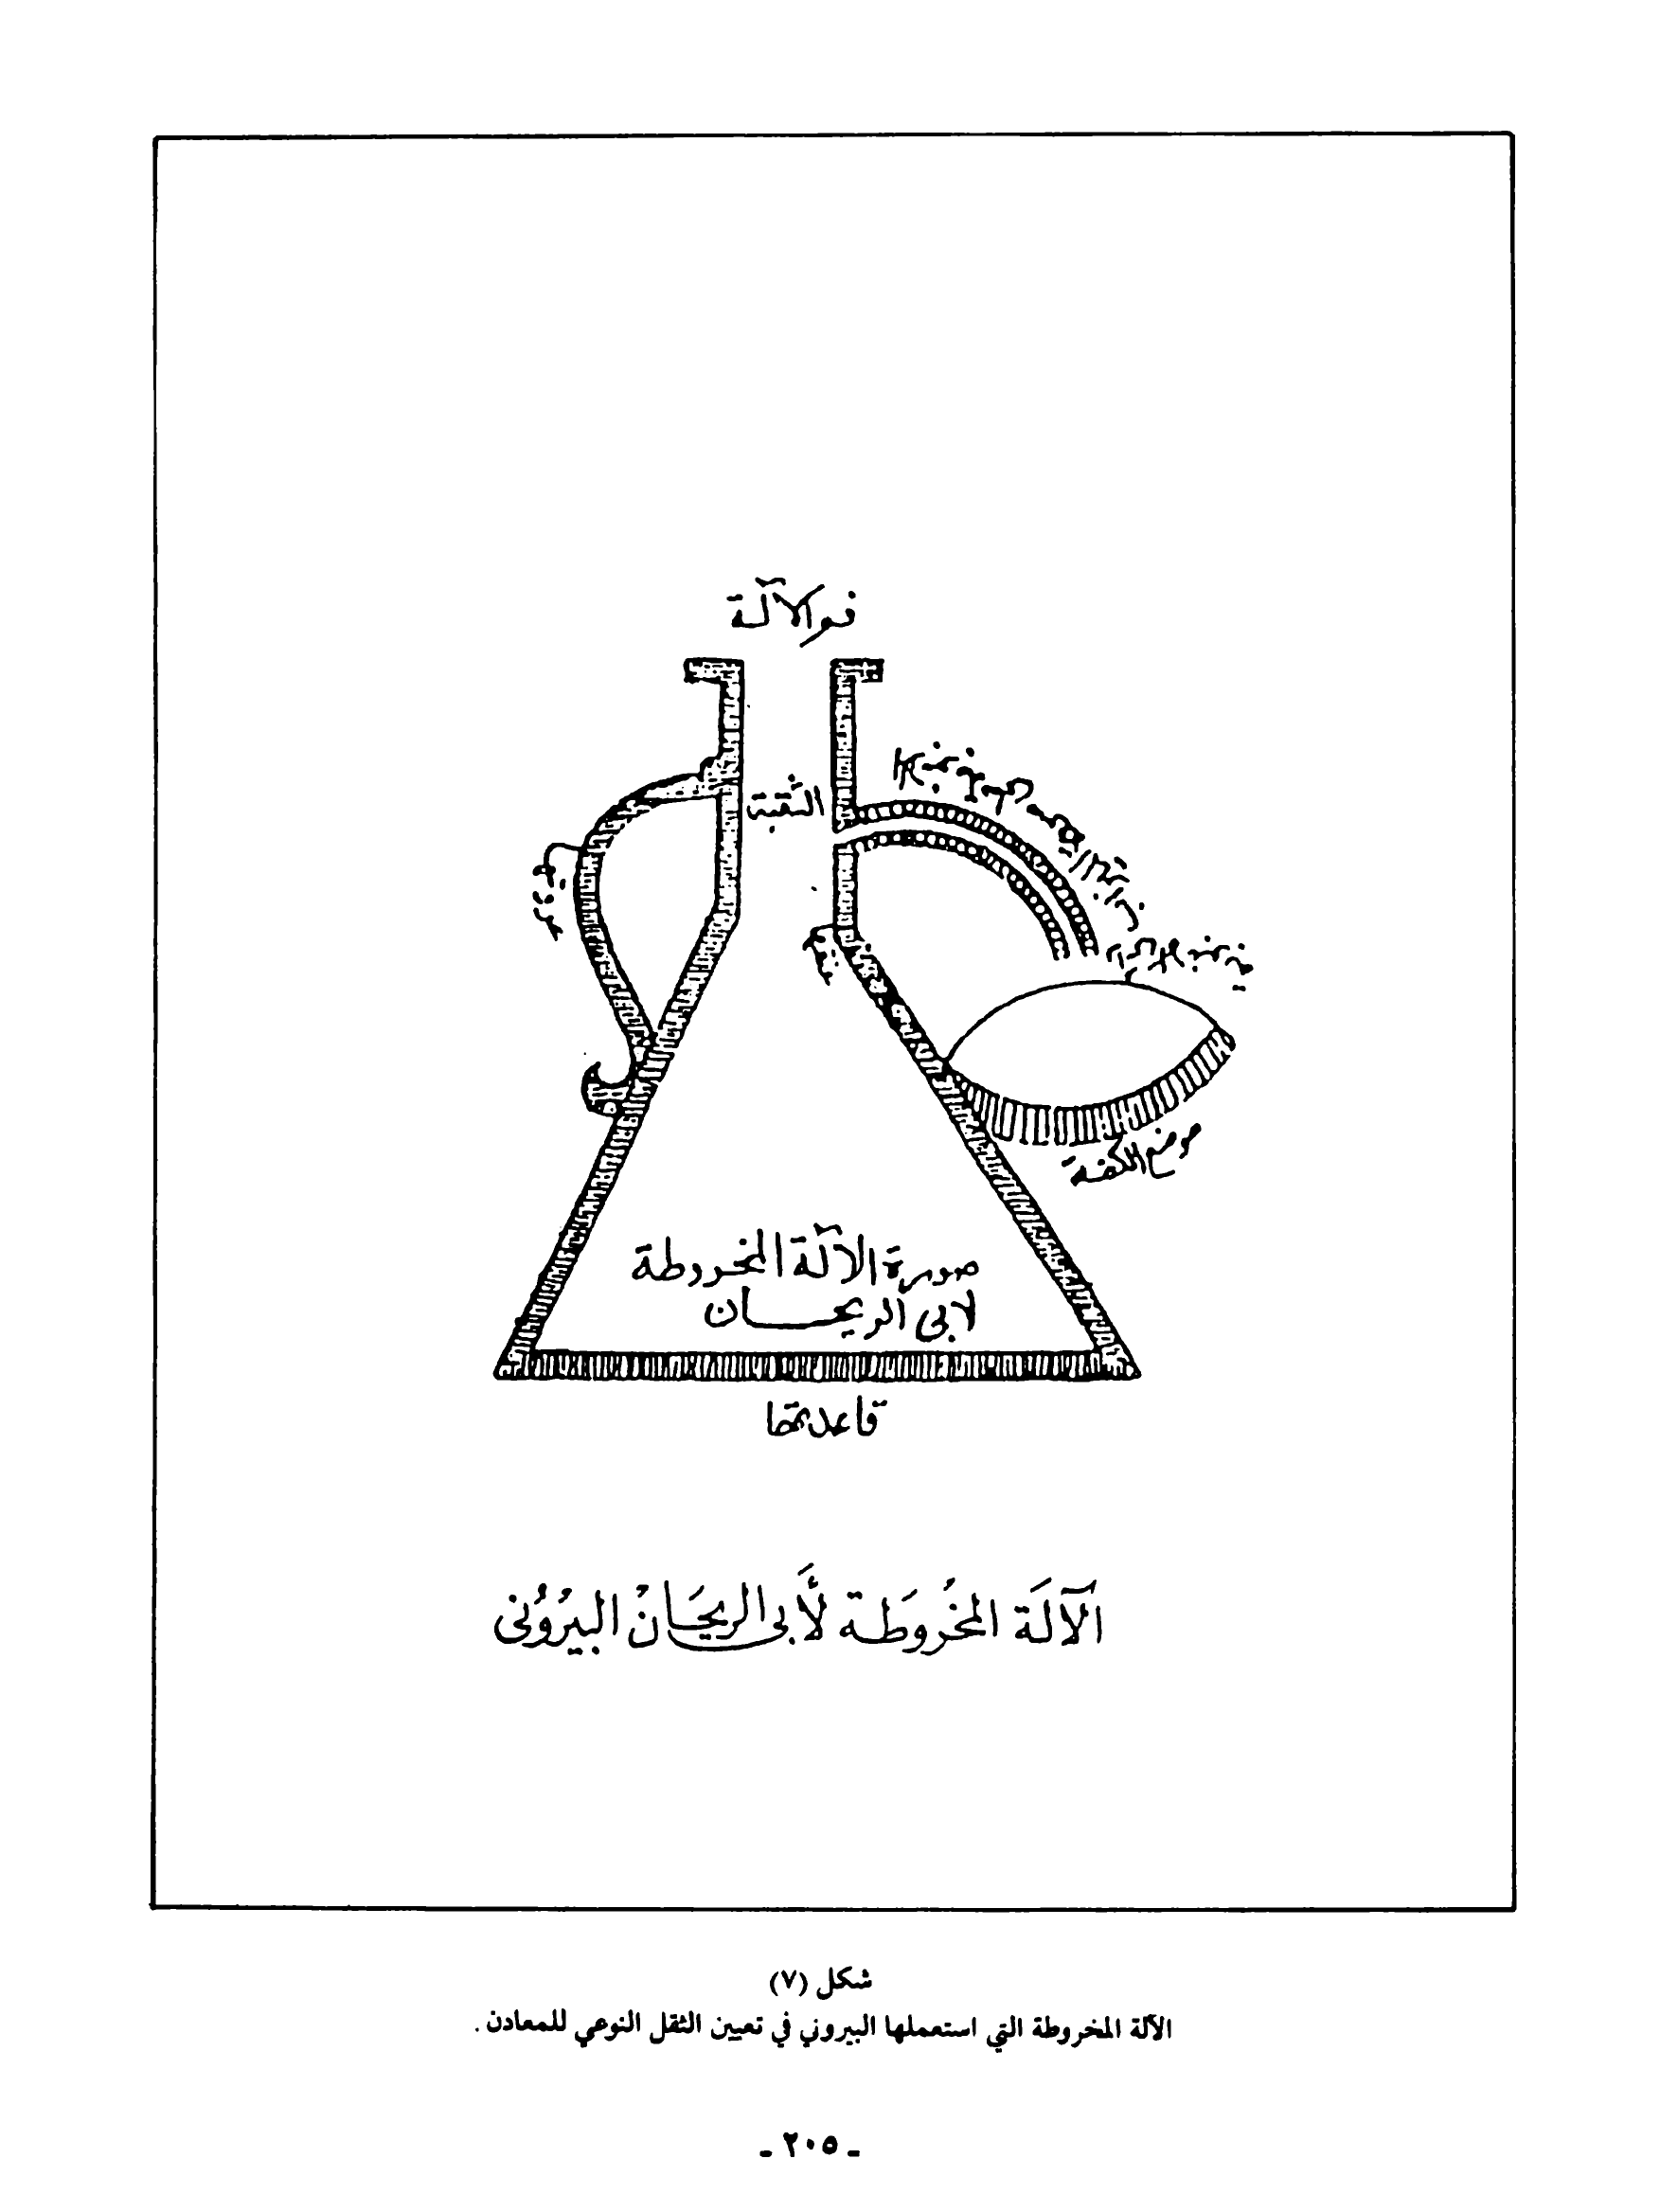 فم الآلة
الثقبة
عنقها
موضع الكفة
صورة الآلة المخروطة
لابي الريحان
قاعدتها
الآلَة المخرُوطَة لأَبي الريحَان البيرُوُنى
شكل (٧)
الآلة المخروطة التي استعملها البيروني في تعيين الثقل النوعي للمعادن .
- ٢٠٥ -